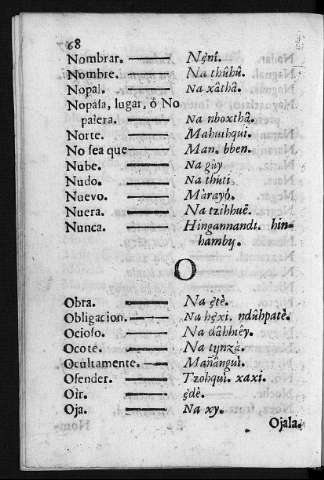 68
Nombrar. — Nę̀nì.
Nombre. — Na thûhû.
Nopal. — Na xâthâ.
Nopala, lugar, ó No
palera. — Na nboxthâ.
Norte. — Mahuthqui.
No ſea que — Man. bben.
Nube. — Na gùy
Nudo. — Na thùti
Nuevo. — M'arayò.
Nuera. — Na tzihhuē.
Nunca. — Hingannandi. hin-
hamby.
O
Obra. — Na ę̀tè.
Obligacion. — Na hę̀xi. ndûhpatè.
Ocioſo. — Na dâhhiêy.
Ocote. — Na tynzą̀.
Ocultamente. — Mañângui.
Ofender. — Tzohqui. xaxi.
Oir. — ę̀dè.
Oja. — Na xy.
Ojala.